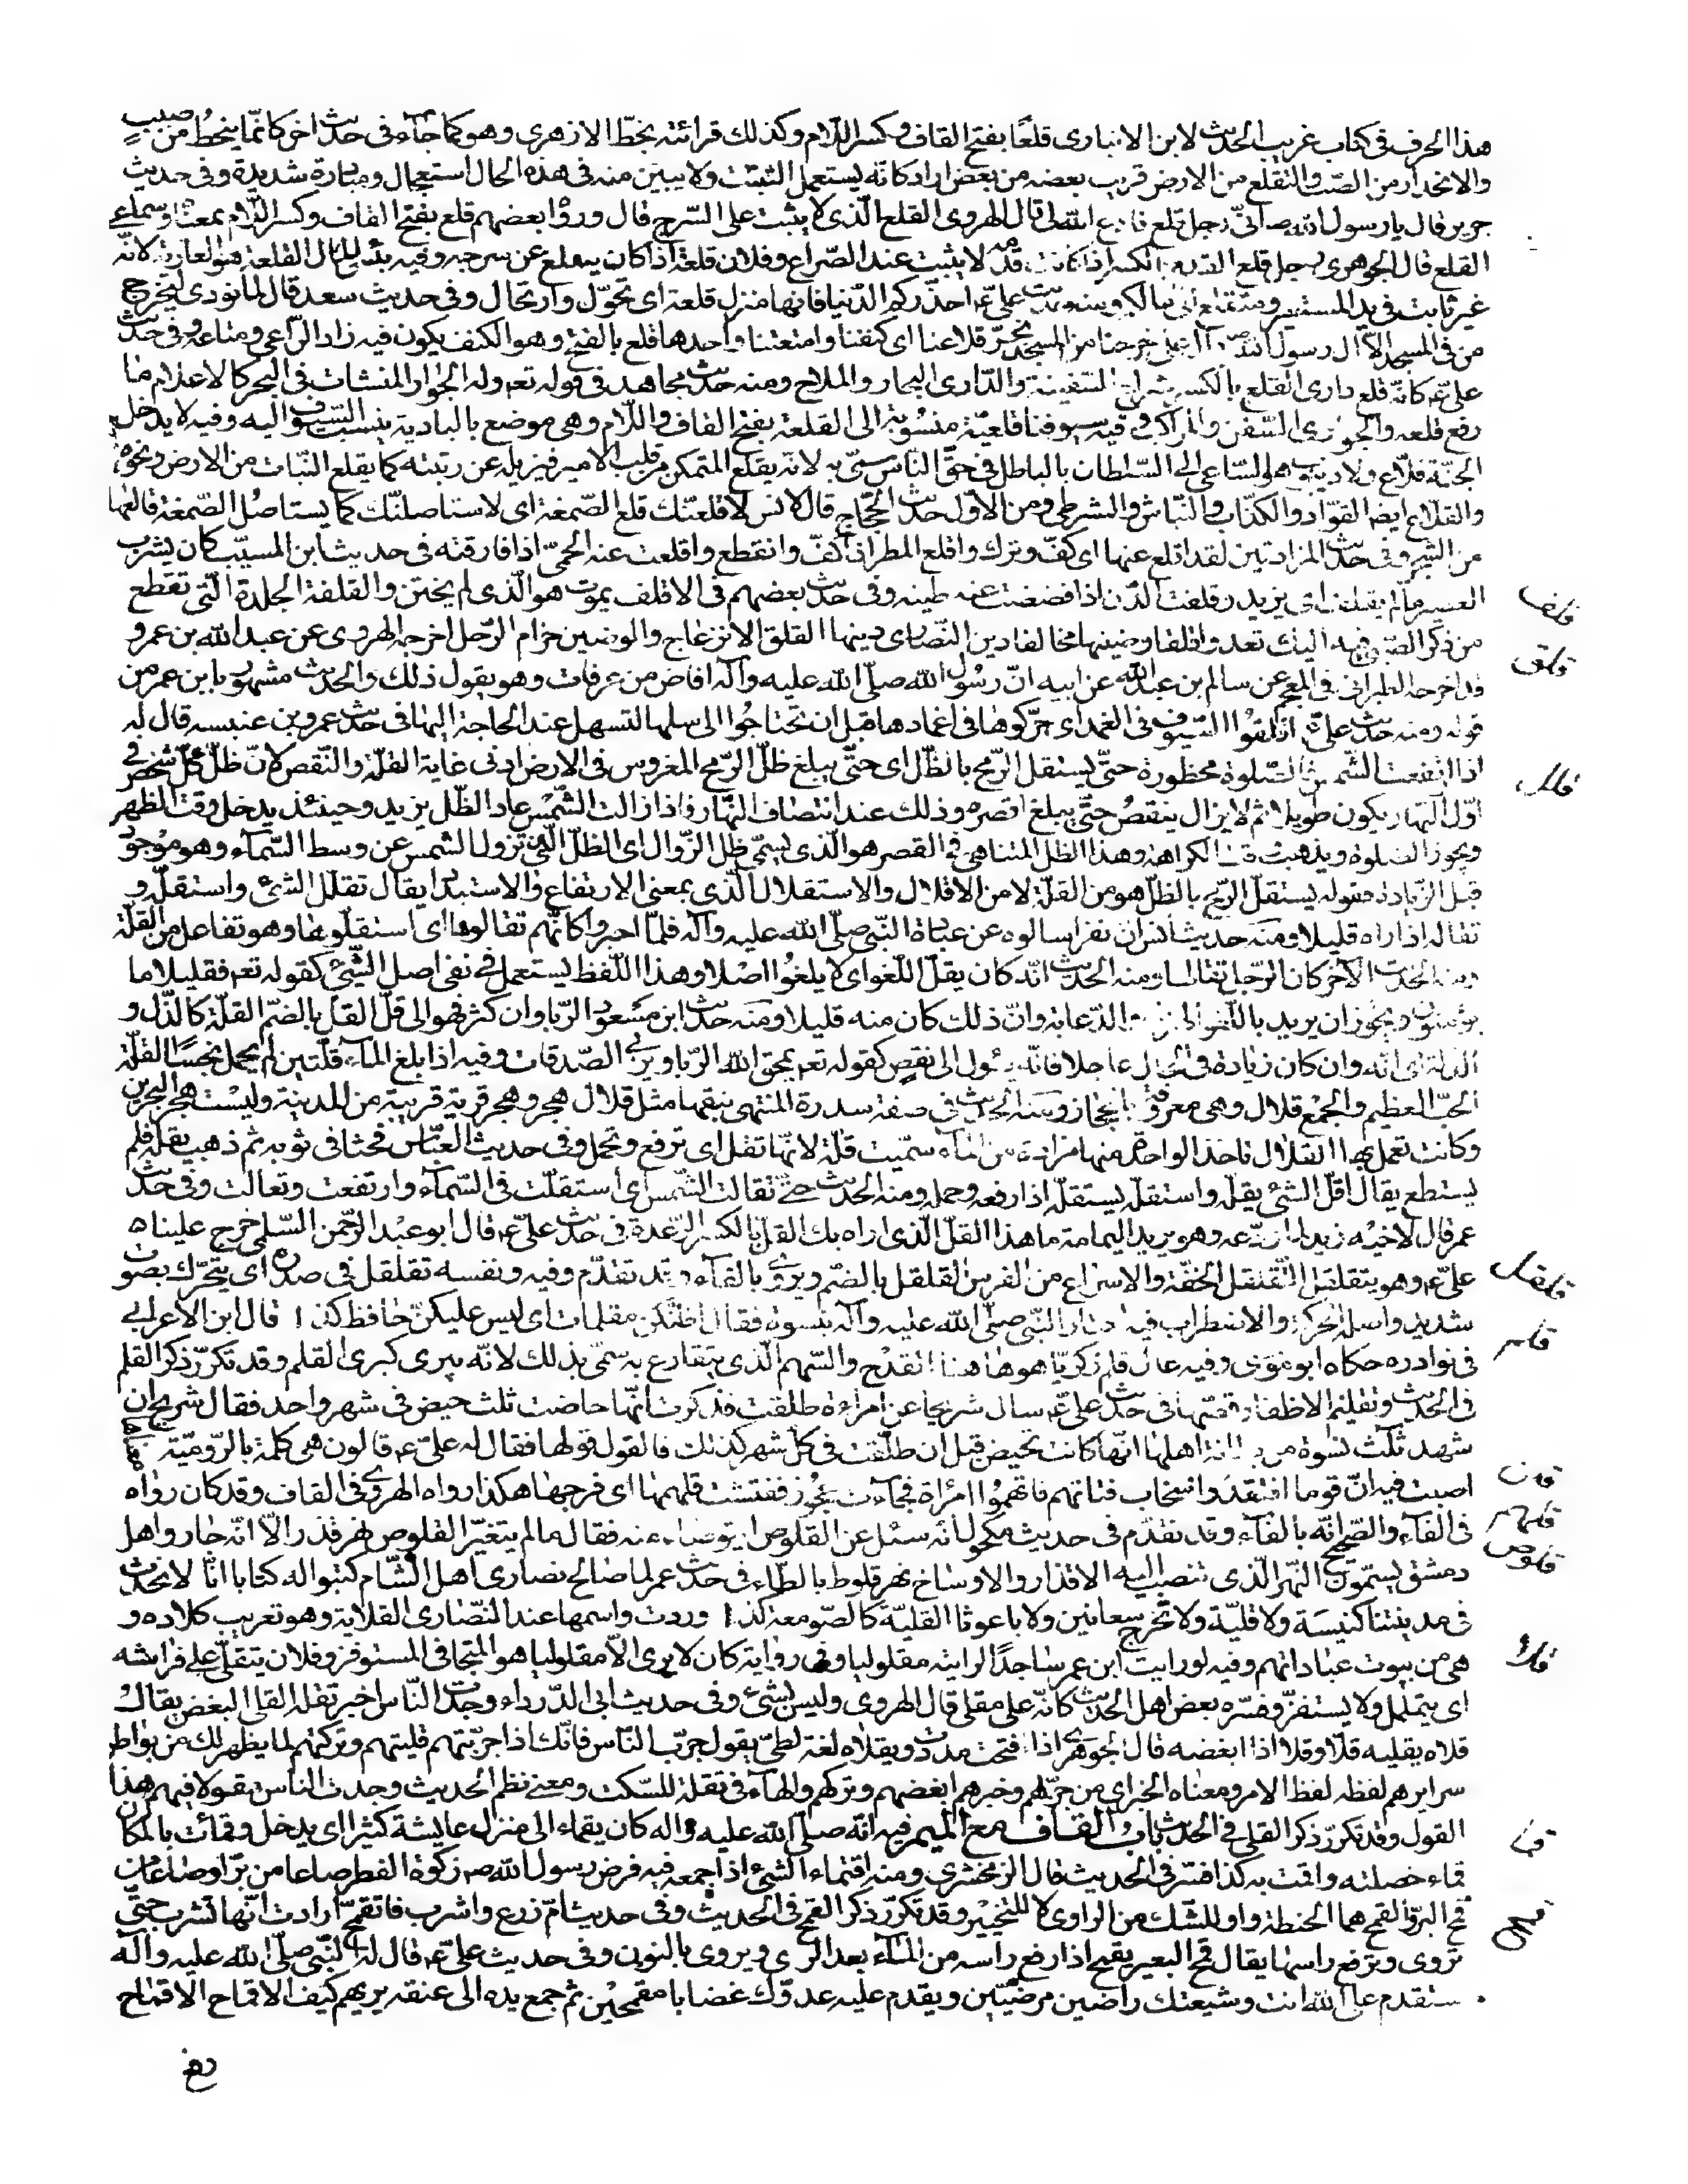 هذا الحرف فى كتاب غريب الحديث لابن الانبارى قلعًا بفتح القاف وكسر اللّام وكذلك قرائته بخطّ الازهرى وهو كما جآء فى حديث اخر كانّما ينحطّ من صبب
والانحدار من الصّبب والتقلع من الارض قريب بعضه من بعض اراد كانّه يستعمل التثبّت ولا يبين منه فى هذه الحال استعجال ومبادرة شديدة وفى حديث
جرير قال يا رسول الله ص انّى رجل قلع فادع الله لى قال الهروى القلع الّذى لا يثبت على السّرج قال ورواه بعضهم قلع بفتح القاف وكسر اللّام بمعناه وسماعى
القلع قال الجوهرى رجل قلع القدم بالكسر اذا كانت قدمه لا يثبت عند الصّراع وفلان قلعة اذا كان يتقلع عن سرجه وفيه بئس المال القلعة هو العارية لانّه
غير ثابت فى يد المستعير ومنقلع الى مالكه ومنه حديث علىّ ع احذّركم الدّنيا فانها منزل قلعة اى تحوّل وارتحال وفى حديث سعد قال لما نودى ليخرج
من فى المسجد الّا ال رسول الله ص وآل على خرجنا من المسجد نجرّ قلاعنا اى كنفنا وامتعتنا واحدها قلع بالفتح وهو الكنف يكون فيه زاد الرّاعى ومتاعه وفى حديث
علىّ ع كانّه قلع دارى القلع بالكسر شراع السّفينة والدّارى البحار والملاح ومنه حديث مجاهد فى قوله تعه وله الجوار المنشات فى البحر كالاعلام ما
رفع قلعه والجوارى السّفن والمراكب وفيه سيوفنا قلعيّة منسوبة الى القلعة بفتح القاف واللّام وهى موضع بالبادية ينسب السّيوف اليه وفيه لا يدخل
الجنّة قلّاع ولا ديبوب هو السّاعى الى السّلطان بالباطل فى حقّ النّاس سمّى به لانّه يقلع المتمكن من قلب الامير فيزيله عن رتبته كما يقلع النّبات من الارض ونحوه
والقلّاع ايضا القوّاد والكذّاب والنّباش والشرطى ومن الاوّل حديث الحجّاج قال لانس لاقلعنّك قلع الصّمغة اى لاستاصلنّك كما يستاصل الصّمغة قالعها
من الشّجر وفى حديث المزادتين لقد اقلع عنها اى كفّ وترك واقلع المطر اذا كفّ وانقطع واقلعت عنه الحمّى اذا فارقته فى حديث ابن المسيّب كان يشرب
العصير ما لم يقلف اى يزبد وقلفت الدّن اذا فضضت عنه طينه وفى حديث بعضهم فى الاقلف يموت هو الّذى لم يختتن والقلفة الجلدة الّتى تقطع
من ذكر الصّبى فيه اليك تعدو قلقا وضينها مخالفا دين النّصارى دينها القلق الانزعاج والوضين حزام الرّحل اخرجه الهروى عن عبد الله بن عمر و
قد اخرجه الطبرانى فى المعجم عن سالم بن عبد الله عن ابيه انّ رسول الله صلّى الله عليه وآله افاض من عرفات وهو يقول ذلك والحديث مشهور بابن عمر من
قوله ومنه حديث علىّ ع اقلقوا السّيوف فى الغمد اى حرّكوها فى اغمادها قبل ان تحتاجوا الى سلها لتسهل عند الحاجة اليها فى حديث عمرو بن عنبسه قال له
اذا ارتفعت الشّمس فالصّلوة محظورة حتّى يستقل الرّمح بالظّل اى حتّى يبلغ ظلّ الرّمح المغروس فى الارض ادنى غاية القلّة والنّقص لانّ ظلّ كلّ شخص فى
اوّل النّهار يكون طويلا ثم لا يزال ينقص حتّى يبلغ اقصره وذلك عند انتصاف النّهار فاذا زالت الشّمس عاد الظّل يزيد وحينئذ يدخل وقت الظهر
ويجوز الصّلوة ويذهب وقت الكراهة وهذا الظل المتناهى فى القصر هو الّذى يسمّى ظل الزّوال اى الظلّ الّذى تزول الشّمس عن وسط السّمآء وهو موجود
قبل الزّيادة فقوله يستقلّ الرّمح بالظلّ هو من القلّة لا من الاقلال والاستقلال الّذى بمعنى الارتفاع والاستبداد يقال تقلل الشىء واستقلّه و
تقاله اذا راه قليلا ومنه حديث انس ان نفرا سالوه عن عبادة النّبى صلّى الله عليه وآله فلمّا اخبروا كانّهم تقالوها اى استقلّوها وهو تفاعل من القلّة
ومنه الحديث الآخر كان الرّجل تقالها ومنه الحديث انّه كان يقلّ اللّغو اى لا يلغو اصلا وهذا اللّفظ يستعمل فى نفى اصل الشّىء كقوله تعه فقليلا ما
يؤمنون ويجوز ان يريد باللّغو الهزل والدّعابة وانّ ذلك كان منه قليلا ومنه حديث ابن مسعود الرّبا وان كثر فهو الى قلّ القلّ بالضّم القلّة كالذّل و
الذلّة اى انّه وان كان زيادة فى المال عاجلا فانّه يؤل الى نقص كقوله تعه يمحق الله الرّبا ويربى الصّدقات وفيه اذا بلغ المآء قلّتين لم يحمل نجسًا القلّة
الحبّ العظيم والجمع قلال وهى معروفة بالحجاز ومنه الحديث فى صفة سدرة المنتهى نبقها مثل قلال هجر وهجر قرية قريبة من المدينة وليست هجر البحرين
وكانت تعمل بها القلال تاخذ الواحدة منها مزادة من المآء سمّيت قلّة لانّها تقل اى ترفع وتحمل وفى حديث العبّاس فحثا فى ثوبه ثم ذهب يقلّه فلم
يستطع يقال اقلّ الشىء يقلّه واستقلّه يستقلّه اذا رفعه وحمله ومنه الحديث حتّى تقالت الشّمس اى استقلّت فى السّمآء وارتفعت وتعالت وفى حديث
عمر قال لاخيه زيد لما ودّعه وهو يريد اليمامة ما هذا القلّ الّذى اراه بك القلّ بالكسر الرّعدة فى حديث علىّ ع قال ابو عبد الرّحمن السّلمى خرج علينا ه
علىّ ع وهو يتقلقل التّقلقل الخفّة والاسراع من الفرس القلقل بالضّم ويروى بالفآء وقد تقدّم وفيه ونفسه تقلقل فى صدره اى يتحرّك بصوت
شديد واصله الحركة والاضطراب فيه اجتاز النّبى صلّى الله عليه وآله بنسوة فقال اظنّكنّ مقلمات اى ليس عليكنّ حافظ كذا قال ابن الاعرابى
فى نوادره حكاه ابو موسى وفيه عال قلم زكريّا هو ها هنا القدح والسّهم الّذى يتقارع به سمّى بذلك لانّه يبرى كبرى القلم وقد تكرّر ذكر القلم
فى الحديث وتقليم الاظفار قصّها فى حديث علىّ ع سال شريحا عن امراءة طلقت فذكرت انّها حاضت ثلث حيض فى شهر واحد فقال شريح ان
شهد ثلث نسوة من بطانة اهلها انّها كانت تحيض قبل ان طلّقت فى كلّ شهر كذلك فالقول قولها فقال له علىّ ع قالون هى كلمة بالرّوميّة معناها
اصبت فيه انّ قوما افتقدوا سخاب فتاتهم فاتّهموا امرأة فجآءت عجوز ففتشت قلهمها اى فرجها هكذا رواه الهروى فى القاف وقد كان رواه
فى الفآء والصّحيح انّه بالفآء وقد تقدّم فى حديث مكحول انّه سئل عن القلوص ايتوضاء منه فقال ما لم يتغيّر القلوص نهر قذر الّا انّه جار واهل
دمشق يسمّون النّهر الّذى تنصبّ اليه الاقذار والاوساخ نهر قلوط بالطّاء فى حديث عمر لما صالح نصارى اهل الشّام كتبوا له كتابا انّا لا نحدث
فى مدينتنا كنيسة ولا قليّة ولا نخرج سعانين ولا باعوثا القليّة كالصّومعة كذا وردت واسمها عند النّصارى القلاية وهو تعريب كلاده و
هى من بيوت عباداتهم وفيه لو رايت ابن عمر ساجدًا لرايته مقلوليا وفى رواية كان لا يرى الّا مقلوليا هو المتجافى المستوفز وفلان يتقلّى على فراشه
اى يتململ ولا يستقرّ وفسّره بعض اهل الحديث كانّه على مقلى قال الهروى وليس بشىء وفى حديث ابى الدّرداء وجدت النّاس اخبر تقله القلى البغض يقال
قلاه يقليه قلا وقلا اذا ابغضه قال الجوهرى اذا فتحت مددت ويقلاه لغة لطىّ يقول جرّب النّاس فانّك اذا جرّبتهم قليتهم وتركتهم لما يظهر لك من بواطن
سرايرهم لفظه لفظ الامر ومعناه الخبر اى من جرّبهم وخبرهم ابغضهم وتركهم والهآء فى تقله للسّكت ومعنى نظم الحديث وجدت الناس مقولا فيهم هذا
القول وقد تكرّر ذكر القلى فى الحديث باب القاف مع الميم فيه انّه صلّى الله عليه وآله كان يقماء الى منزل عايشة كثيرا اى يدخل وقمأت بالمكان
قماء دخلته واقمت به كذا فسّر فى الحديث قال الزمخشرى ومنه اقتماء الشىء اذا جمعه فيه فرض رسول الله ص زكوة الفطر صاعا من برّ او صاعا من
قمح البرّ والقمح هما الحنطة واو للشّك من الراوى لا للتّخيير وقد تكرّر ذكر القمح فى الحديث وفى حديث امّ زرع واشرب فاتقمّح ارادت انّها تشرب حتّى
تروى وترفع راسها يقال قمح البعير يقمح اذا رفع راسه من المآء بعد الرى ويروى بالنون وفى حديث علىّ ع قال له النّبى صلّى الله عليه وآله
ستقدم على الله انت وشيعتك راضين مرضيّين ويقدم عليه عدوّك غضابا مقمحين ثم جمع يده الى عنقه يريهم كيف الاقماح الاقماح
قلف
قلق
قلل
قلقل
قلم
قلن
قلهم
قلوص
قلا
قما
قمح
رفع